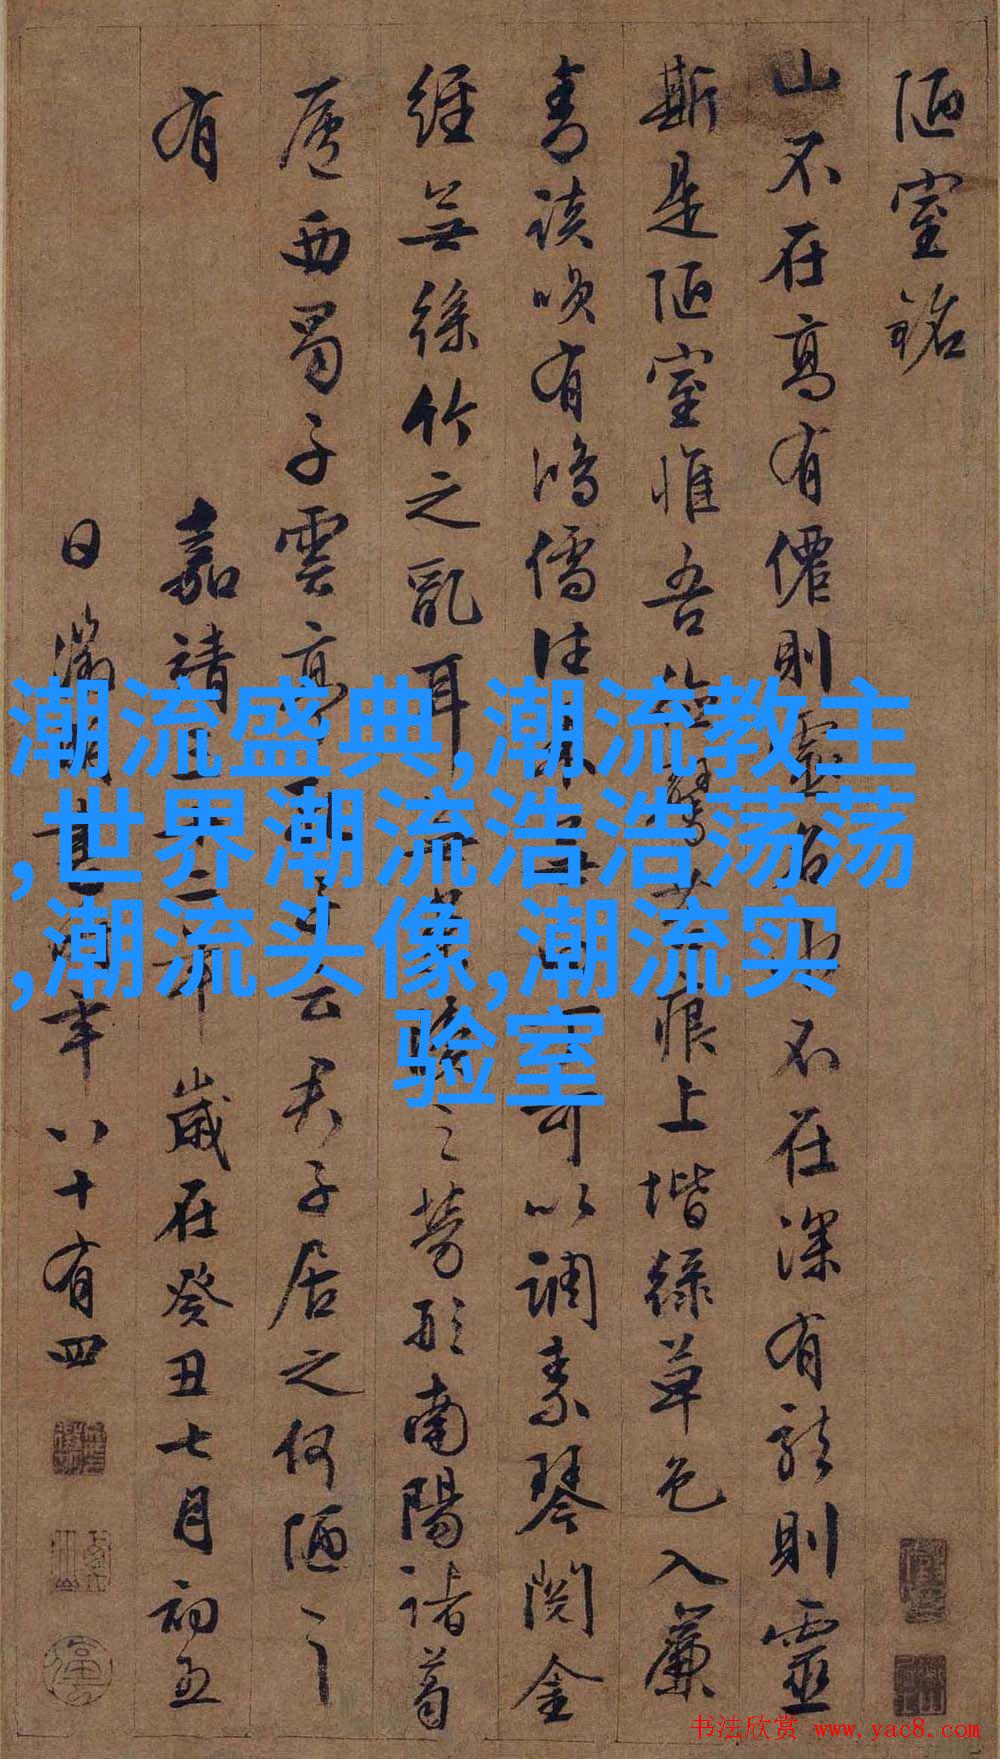 陋室銘
山不在高有僊則靈名水不在深有龍則靈
斯是陋室惟吾德馨苔痕上堦綠草色入簾
青談咲有鴻儒往來無白丁可以調素琴閱金
經無絲竹之亂耳無案牘之勞形南陽諸葛
廬西蜀子雲亭孔子云君子居之何陋之
有
嘉靖三十二年歲在癸丑七月初五
日徵明書時年八十有四
潮流盛典,潮流教主
,世界潮流浩浩荡荡
,潮流头像,潮流实
验室
书法欣赏 www.yac8.com